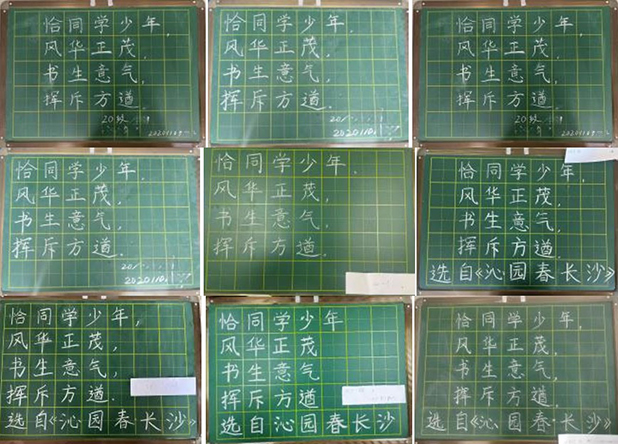 恰同学少年,
风华正茂,
书生意气,
挥斥方遒.
20级
恰同学少年,
风华正茂,
书生意气,
挥斥方遒.
恰同学少年,
风华正茂,
书生意气,
挥斥方遒.
20级
恰同学少年,
风华正茂,
书生意气,
挥斥方遒.
恰同学少年,
风华正茂,
书生意气,
挥斥方遒.
恰同学少年,
风华正茂,
书生意气,
挥斥方遒.
选自《沁园春长沙》
恰同学少年,
风华正茂,
书生意气,
挥斥方遒.
选自《沁园春长沙》
恰同学少年
风华正茂
书生意气
挥斥方遒
选自沁园春长沙
恰同学少年,
风华正茂,
书生意气,
挥斥方遒.
选自《沁园春·长沙》